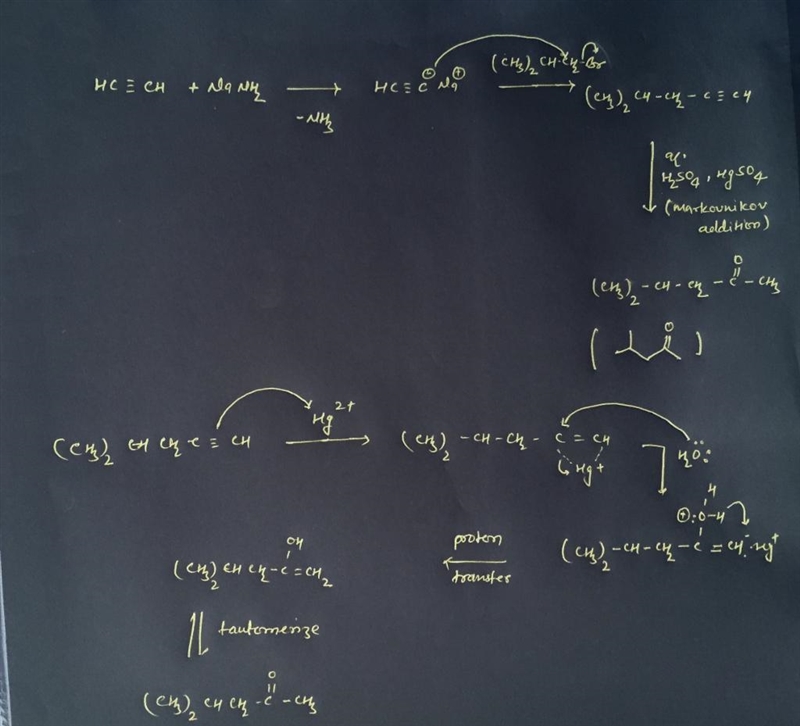 HC ≡ CH + NaNH₂ ⟶ HC ≡ C⊖ Na⊕ (CH₃)₂ CH-CH₂-Br ⟶ (CH₃)₂ CH-CH₂-C ≡ CH
-NH₃
aq.
H₂SO₄, HgSO₄
(markovnikov
addition)
O
(CH₃)₂-CH-CH₂-C-CH₃
O
(CH₃)₂ CH CH₂-C ≡ CH Hg²⁺ ⟶ (CH₃)₂-CH-CH₂-C = CH H₂O:
Hg+
H
⊕:O-H
(CH₃)₂-CH-CH₂-C = CH: Hg⁺
proton
transfer
OH
(CH₃)₂ CH CH₂-C=CH₂
tautomerize
O
(CH₃)₂ CH CH₂-C-CH₃